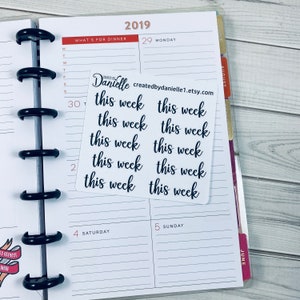 2019
WHAT'S FOR DINNER
29 MONDAY
Danielle
createdbydanielle1.etsy.com
this week this week
this week this week
this week this week
this week this week
this week this week
30
4 SATURDAY
5 SUNDAY
JUNE